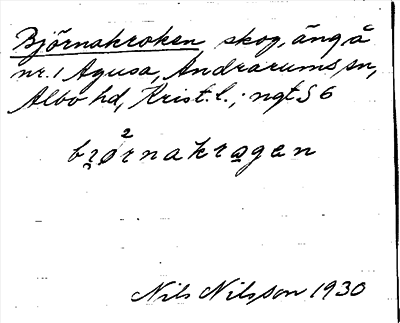 Björnakroken, skog, äng å
nr. 1 Agusa, Andrarums sn,
Albo hd, Krist. l.; ngt S 6
br̥ø²rnakra̤gen
Nils Nilsson 1930